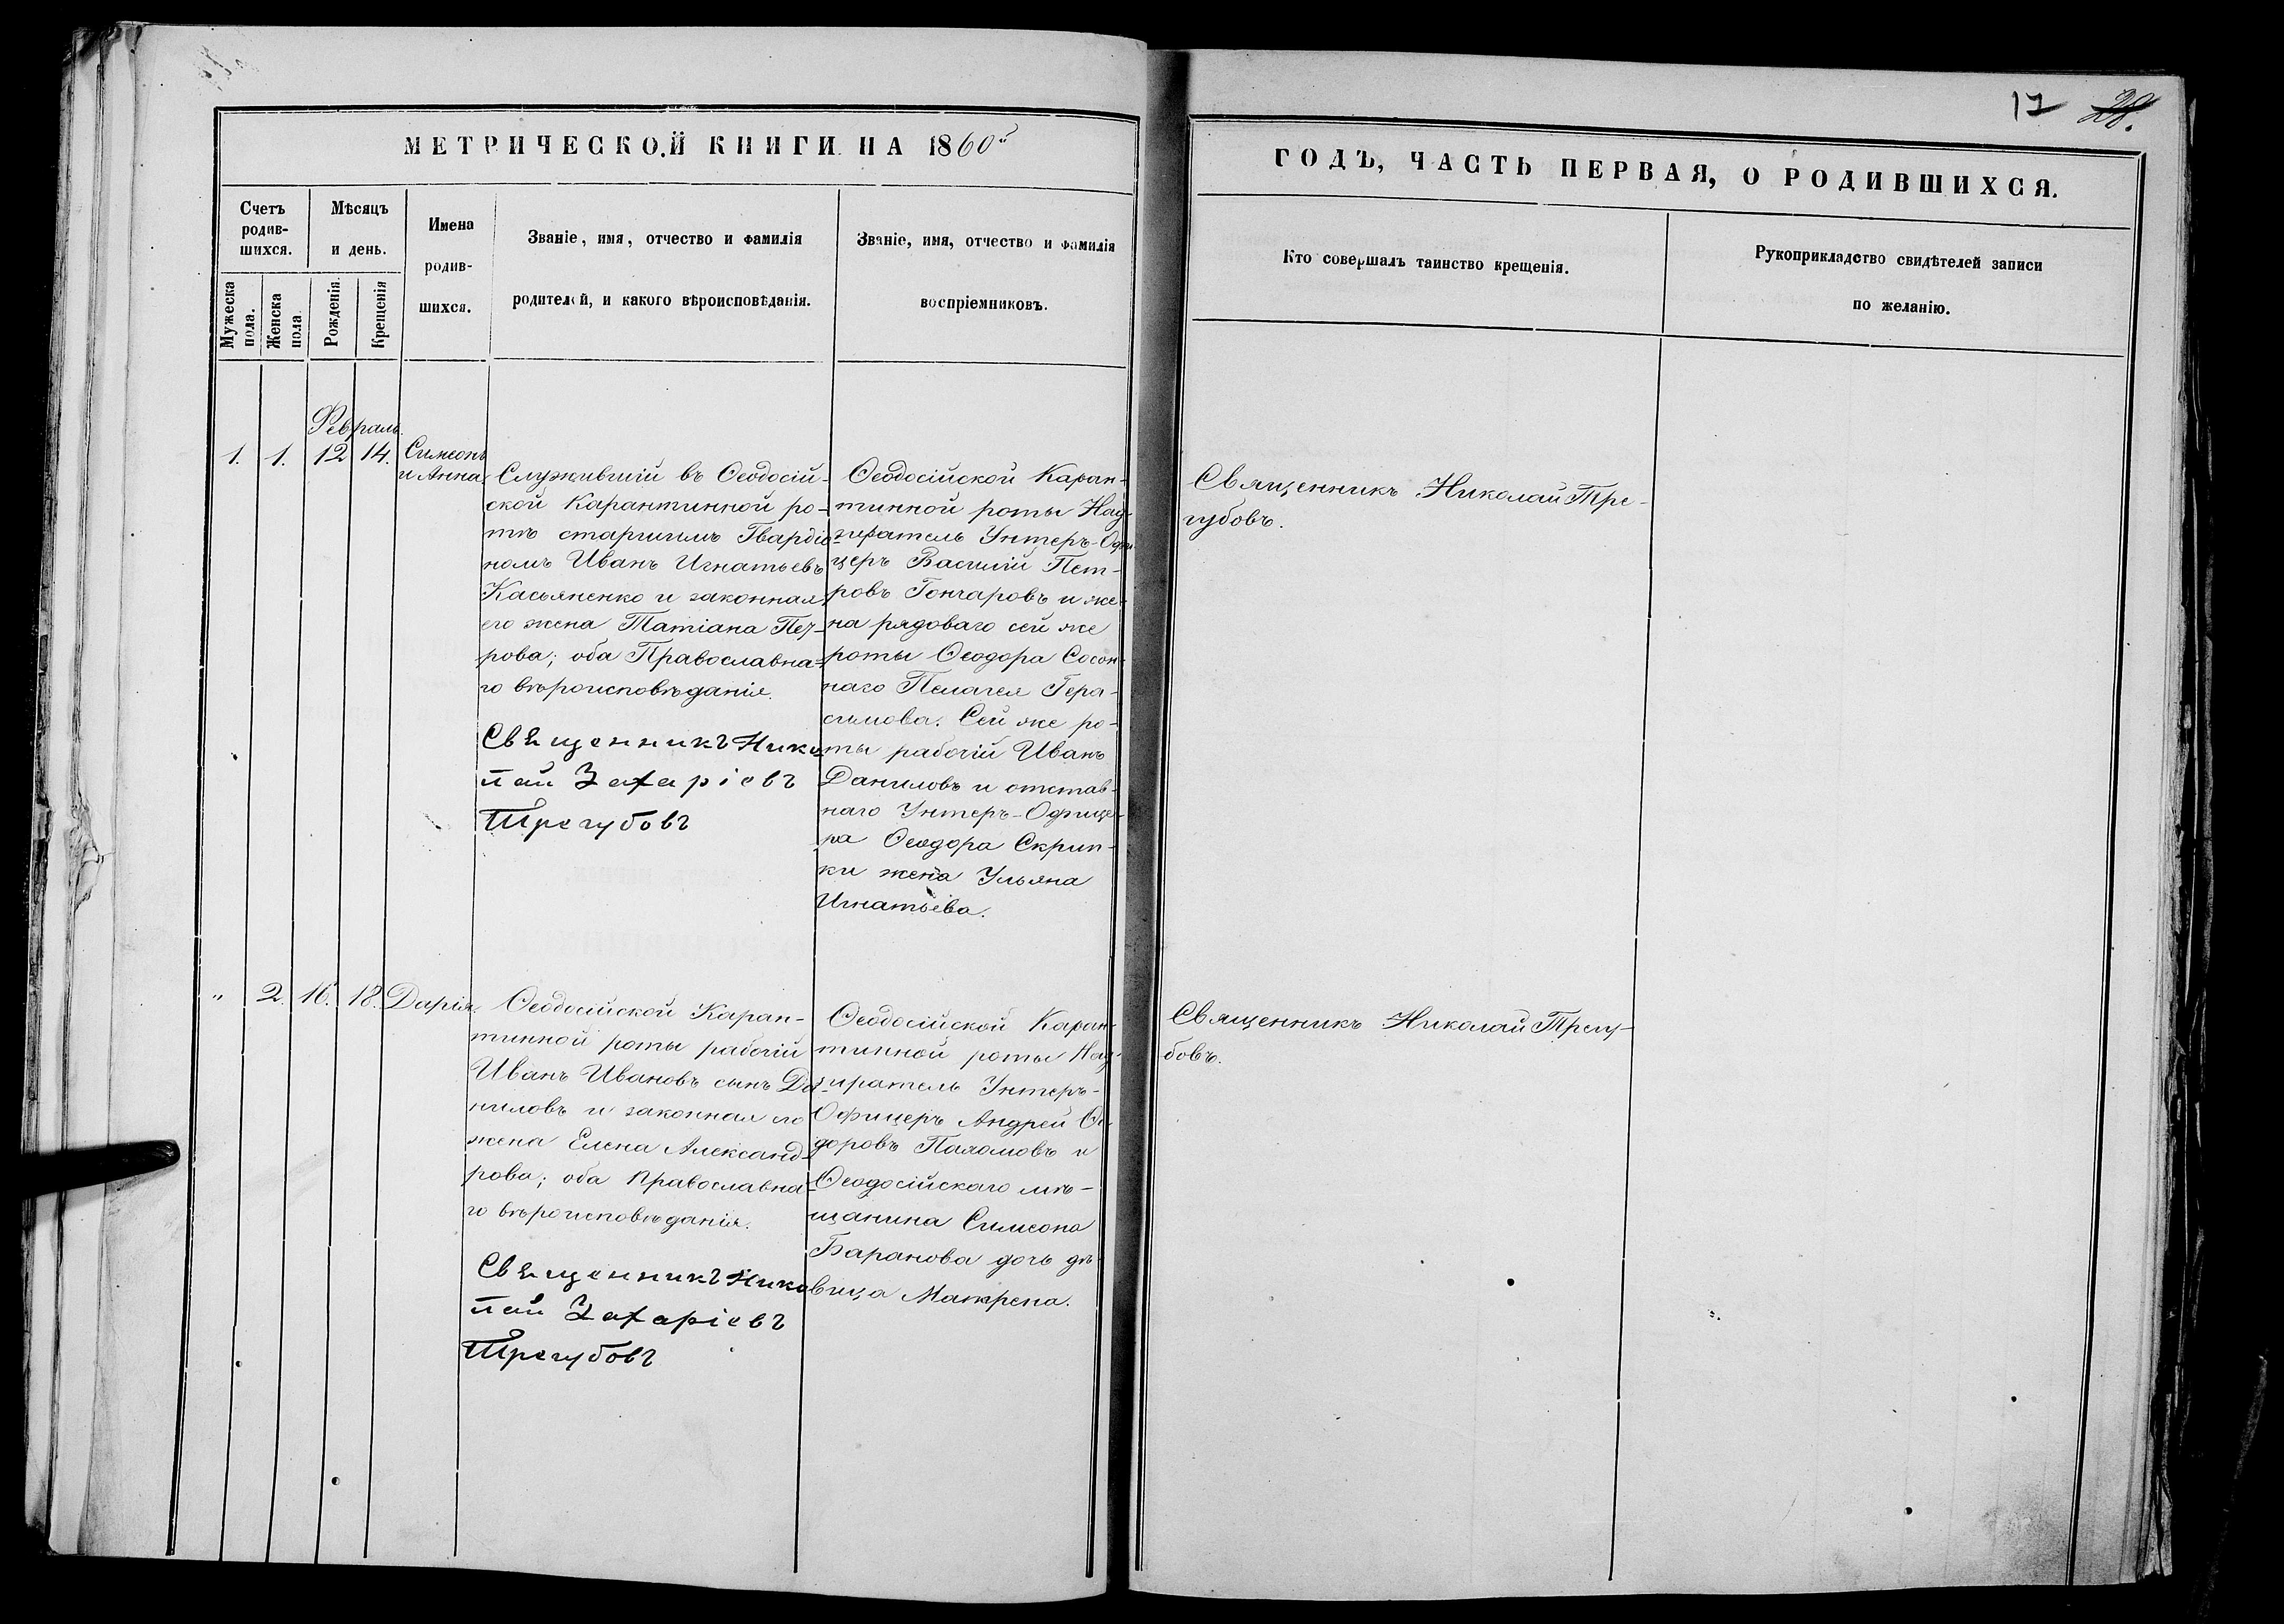 17 28.
МЕТРИЧЕСКОЙ КНИГИ НА 1860й
ГОДЪ, ЧАСТЬ ПЕРВАЯ, О РОДИВШИХСЯ.
Счетъ
родив-
шихся.
Мужеска
пола.
Женска
пола
Мѣсяцъ
и день.
Рожденія.
Крещенія
Имена
родив-
шихся.
Званіе, имя, отчество и фамилія
родителей, и какого вѣроисповѣданія.
Званіе, имя, отчество и фамилія
воспріемниковъ.
Кто совершалъ таинство крещенія.
Рукоприкладство свидѣтелей записи
по желанію.
Февраль.
1. 1. 12 14. Симеонъ
и Анна.
Служившій въ Ѳеодосій-
ской Карантинной ро-
тѣ старшимъ Гвардіо-
номъ Иванъ Игнатьевъ
Касьяненко и законная
его жена Татіана Пет-
рова; оба Православна-
го вѣроисповѣданія.
Священникъ Нико
лай Захаріевъ
Трегубовъ
Ѳеодосійской Каран-
тинной роты Над-
зиратель Унтеръ-Офи
церъ Василій Пет-
ровъ Гончаровъ и же-
на рядоваго сей же
роты Ѳеодора Сосон-
наго Пелагея Гера-
симова. Сей же ро-
ты рабочій Иванъ
Даниловъ и отстав-
наго Унтеръ-Офице-
ра Ѳеодора Скрип-
ки жена Ульяна
Игнатьева.
Священникъ Николай Тре-
губовъ.
" 2. 16. 18. Дарія.
Ѳеодосійской Каран-
тинной роты рабочій
Иванъ Ивановъ сынъ Да-
ниловъ и законная его
жена Елена Александ-
рова; оба Православна-
го вѣроисповѣданія.
Священникъ Нико
лай Захаріевъ
Трегубовъ
Ѳеодосійской Каран-
тинной роты Над-
зиратель Унтеръ-
Офицеръ Андрей Ѳе
доровъ и
Ѳеодосійскаго мѣ-
щанина Симеона
Баранова дочь дѣ-
вица Матрена.
Священникъ Николай Трегу-
бовъ.